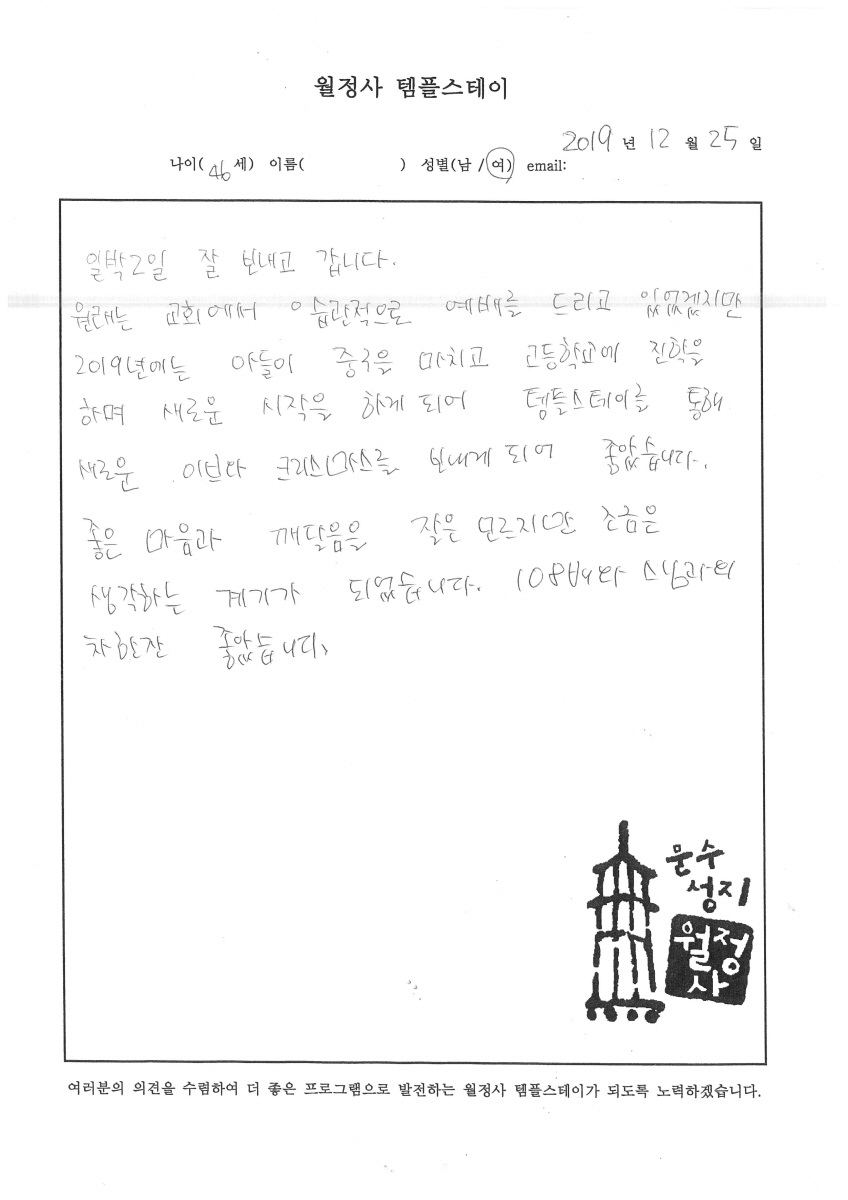 월정사 템플스테이
2019 년 12 월 25 일
나이( 46 세) 이름( ) 성별(남 / 여) email:
일박2일 잘 보내고 갑니다.
원래는 교회에서 습관적으로 예배를 드리고 있었겠지만
2019년에는 아들이 중국을 마치고 고등학교에 진학을
하며 새로운 시작을 하게 되어 템플스테이를 통해
새로운 이브와 크리스마스를 보내게 되어 좋았습니다.
좋은 마음과 깨달음을 잘은 모르지만 조금은
생각하는 계기가 되었습니다. 108배와 스님과의
차한잔 좋았습니다.
문수
성지
월정
사
여러분의 의견을 수렴하여 더 좋은 프로그램으로 발전하는 월정사 템플스테이가 되도록 노력하겠습니다.